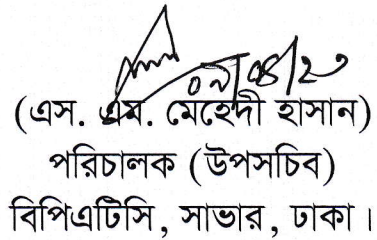 (এস. এম. মেহেদী হাসান)
পরিচালক (উপসচিব)
বিপিএটিসি, সাভার, ঢাকা।